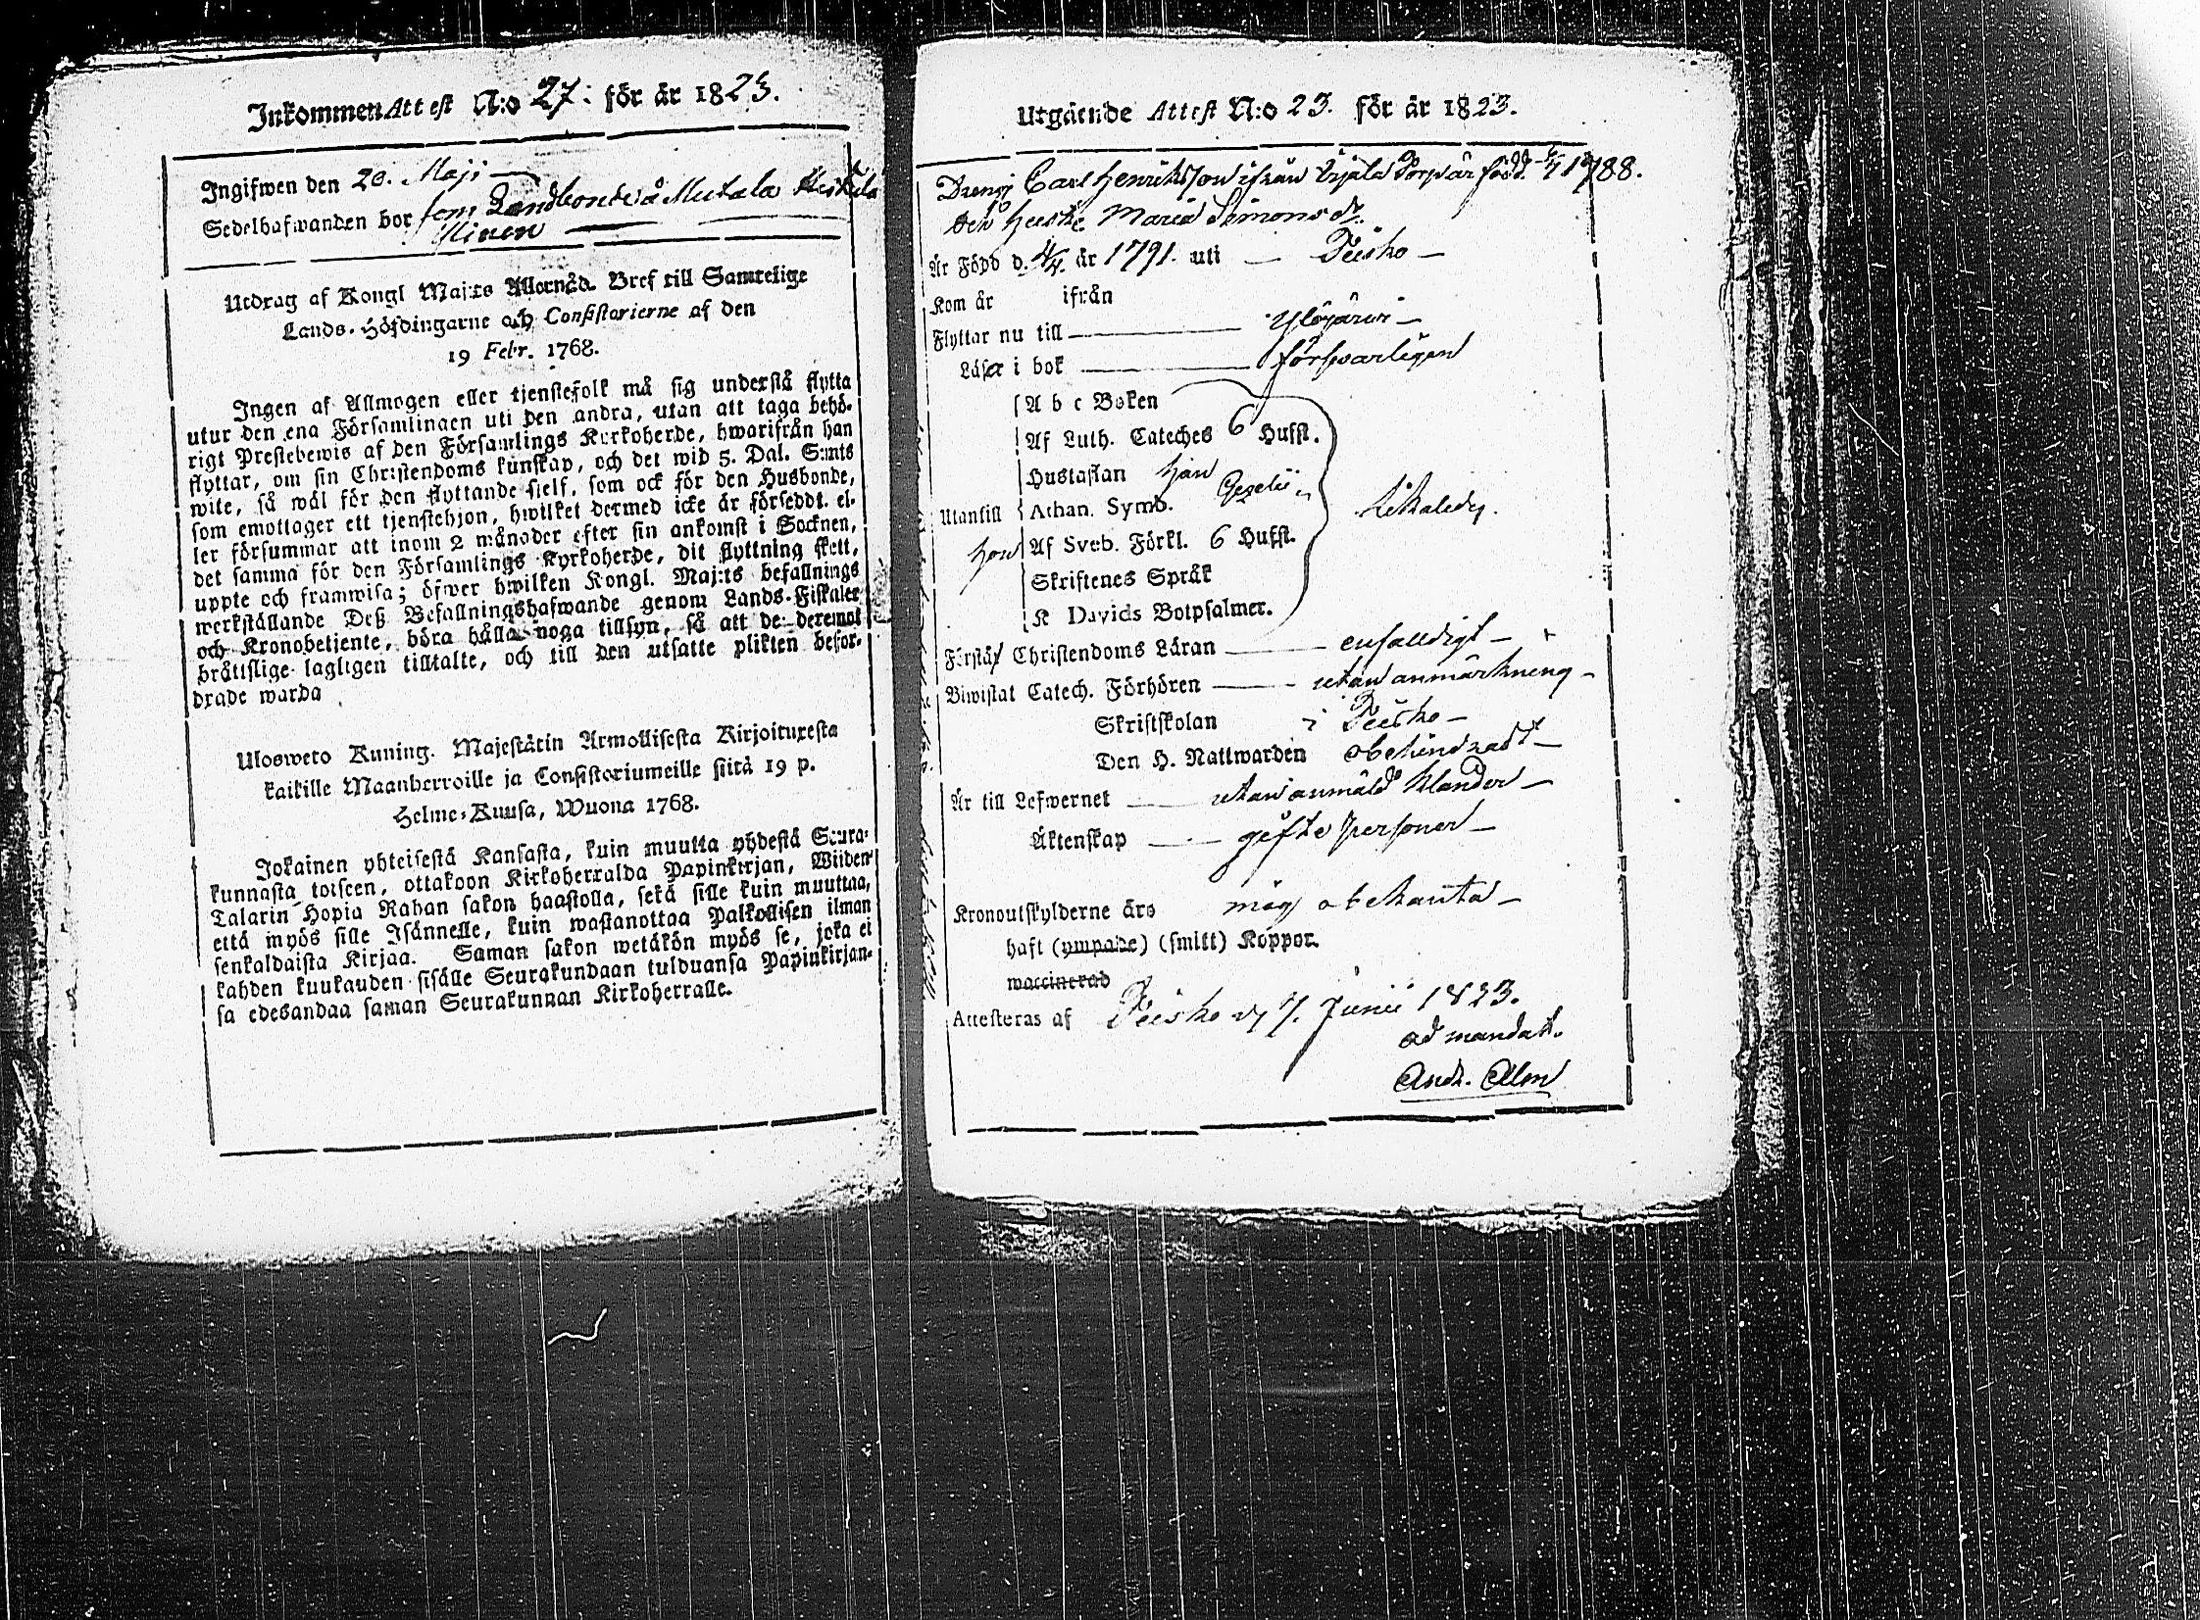 Inkommen Attest N:o 27. för år 1823.
Ingifwen den 20. Maji
Sedelhafwanden bor som Landbonde å Mutala
Utdrag af Kongl Maj:ts Allernåd. Bref till Samtelige
Lands-Höfdingarne och Consistorierne af den
19 Febr. 1768.
Ingen af Allmogen eller tjenstefolk må sig understå flytta
utur den ena Församlingen uti den andra, utan att taga behö-
rigt Prestebewis af den Församlings Kyrkoherde, hwarifrån han
flyttar, om sin Christendoms kunskap, och det wid 5. Dal. S:mts
wite, så wäl för den flyttande sielf, som ock för den Husbonde,
som emottager ett tjenstehjon, hwilket dermed icke är försedt, el-
ler försummar att inom 2 månader efter sin ankomst i Socknen,
det samma för den Församlings Kyrkoherde, dit flyttning skett,
uppte och framwisa; öfwer hwilken Kongl. Maj:ts befallnings
werkställande Deß Befallningshafwande genom Lands-Fiskaler
och Kronobetjente, böra hålla noga tillsyn, så att de deremot
bråttslige lagligen tilltalte, och till den utsatte plikten befor-
drade warda
Ulosweto Kuning. Majestätin Armollisesta Kirjoituxesta
kaikille Maanherroille ja Consistoriumeille siitä 19 p.
Helme-Kuusa, Wuona 1768.
Jokainen yhteisestä Kansasta, kuin muutta yhdestä Seura-
kunnasta toiseen, ottakoon Kirkoherralda Papinkirjan, Wiiden
Talarin Hopia Rahan sakon haastolla, sekä sille kuin muuttaa,
että myös sille Isännelle, kuin wastanottaa Palkollisen ilman
senkaldaista Kirjaa. Saman sakon wetäkön myös se, joka ei
kahden kuukauden sisälle Seurakundaan tulduansa Papinkirjan-
sa edesandaa saman Seurakunnan Kirkoherralle.
Utgående Attest N:o 23. för år 1823.
Dreng Carl Henriksson ifrån född 1788.
Och Hustr. Maria Simonsdr.
Är Född d. 4/4. år 1791. uti
Kom år ifrån
Flyttar nu till Ylöjärvi
Läsa i bok försvarligen
A b c Boken
Af Luth. Cateches 6 Hufst.
Hustaflan han
Utantill Athan. Symb. Gezelii
hon Af Sveb. Förkl. 6 Hufst.
Skriftenes Språk
K Davids Botpsalmer.
Förstår Christendoms Läran enfalldigt
Biwistat Catech. Förhören utan anmärkning
Skriftskolan i
Den H. Nattwarden obehindradt
Är till Lefwernet utan anmäld klander
Äktenskap gifte personer
Kronoutskylderne års mig obekanta
haft (ympade) (smitt) Koppor.
waccinerad
Attesteras af d. 7. Junii 1823.
ad mandat.
Andr. Alm